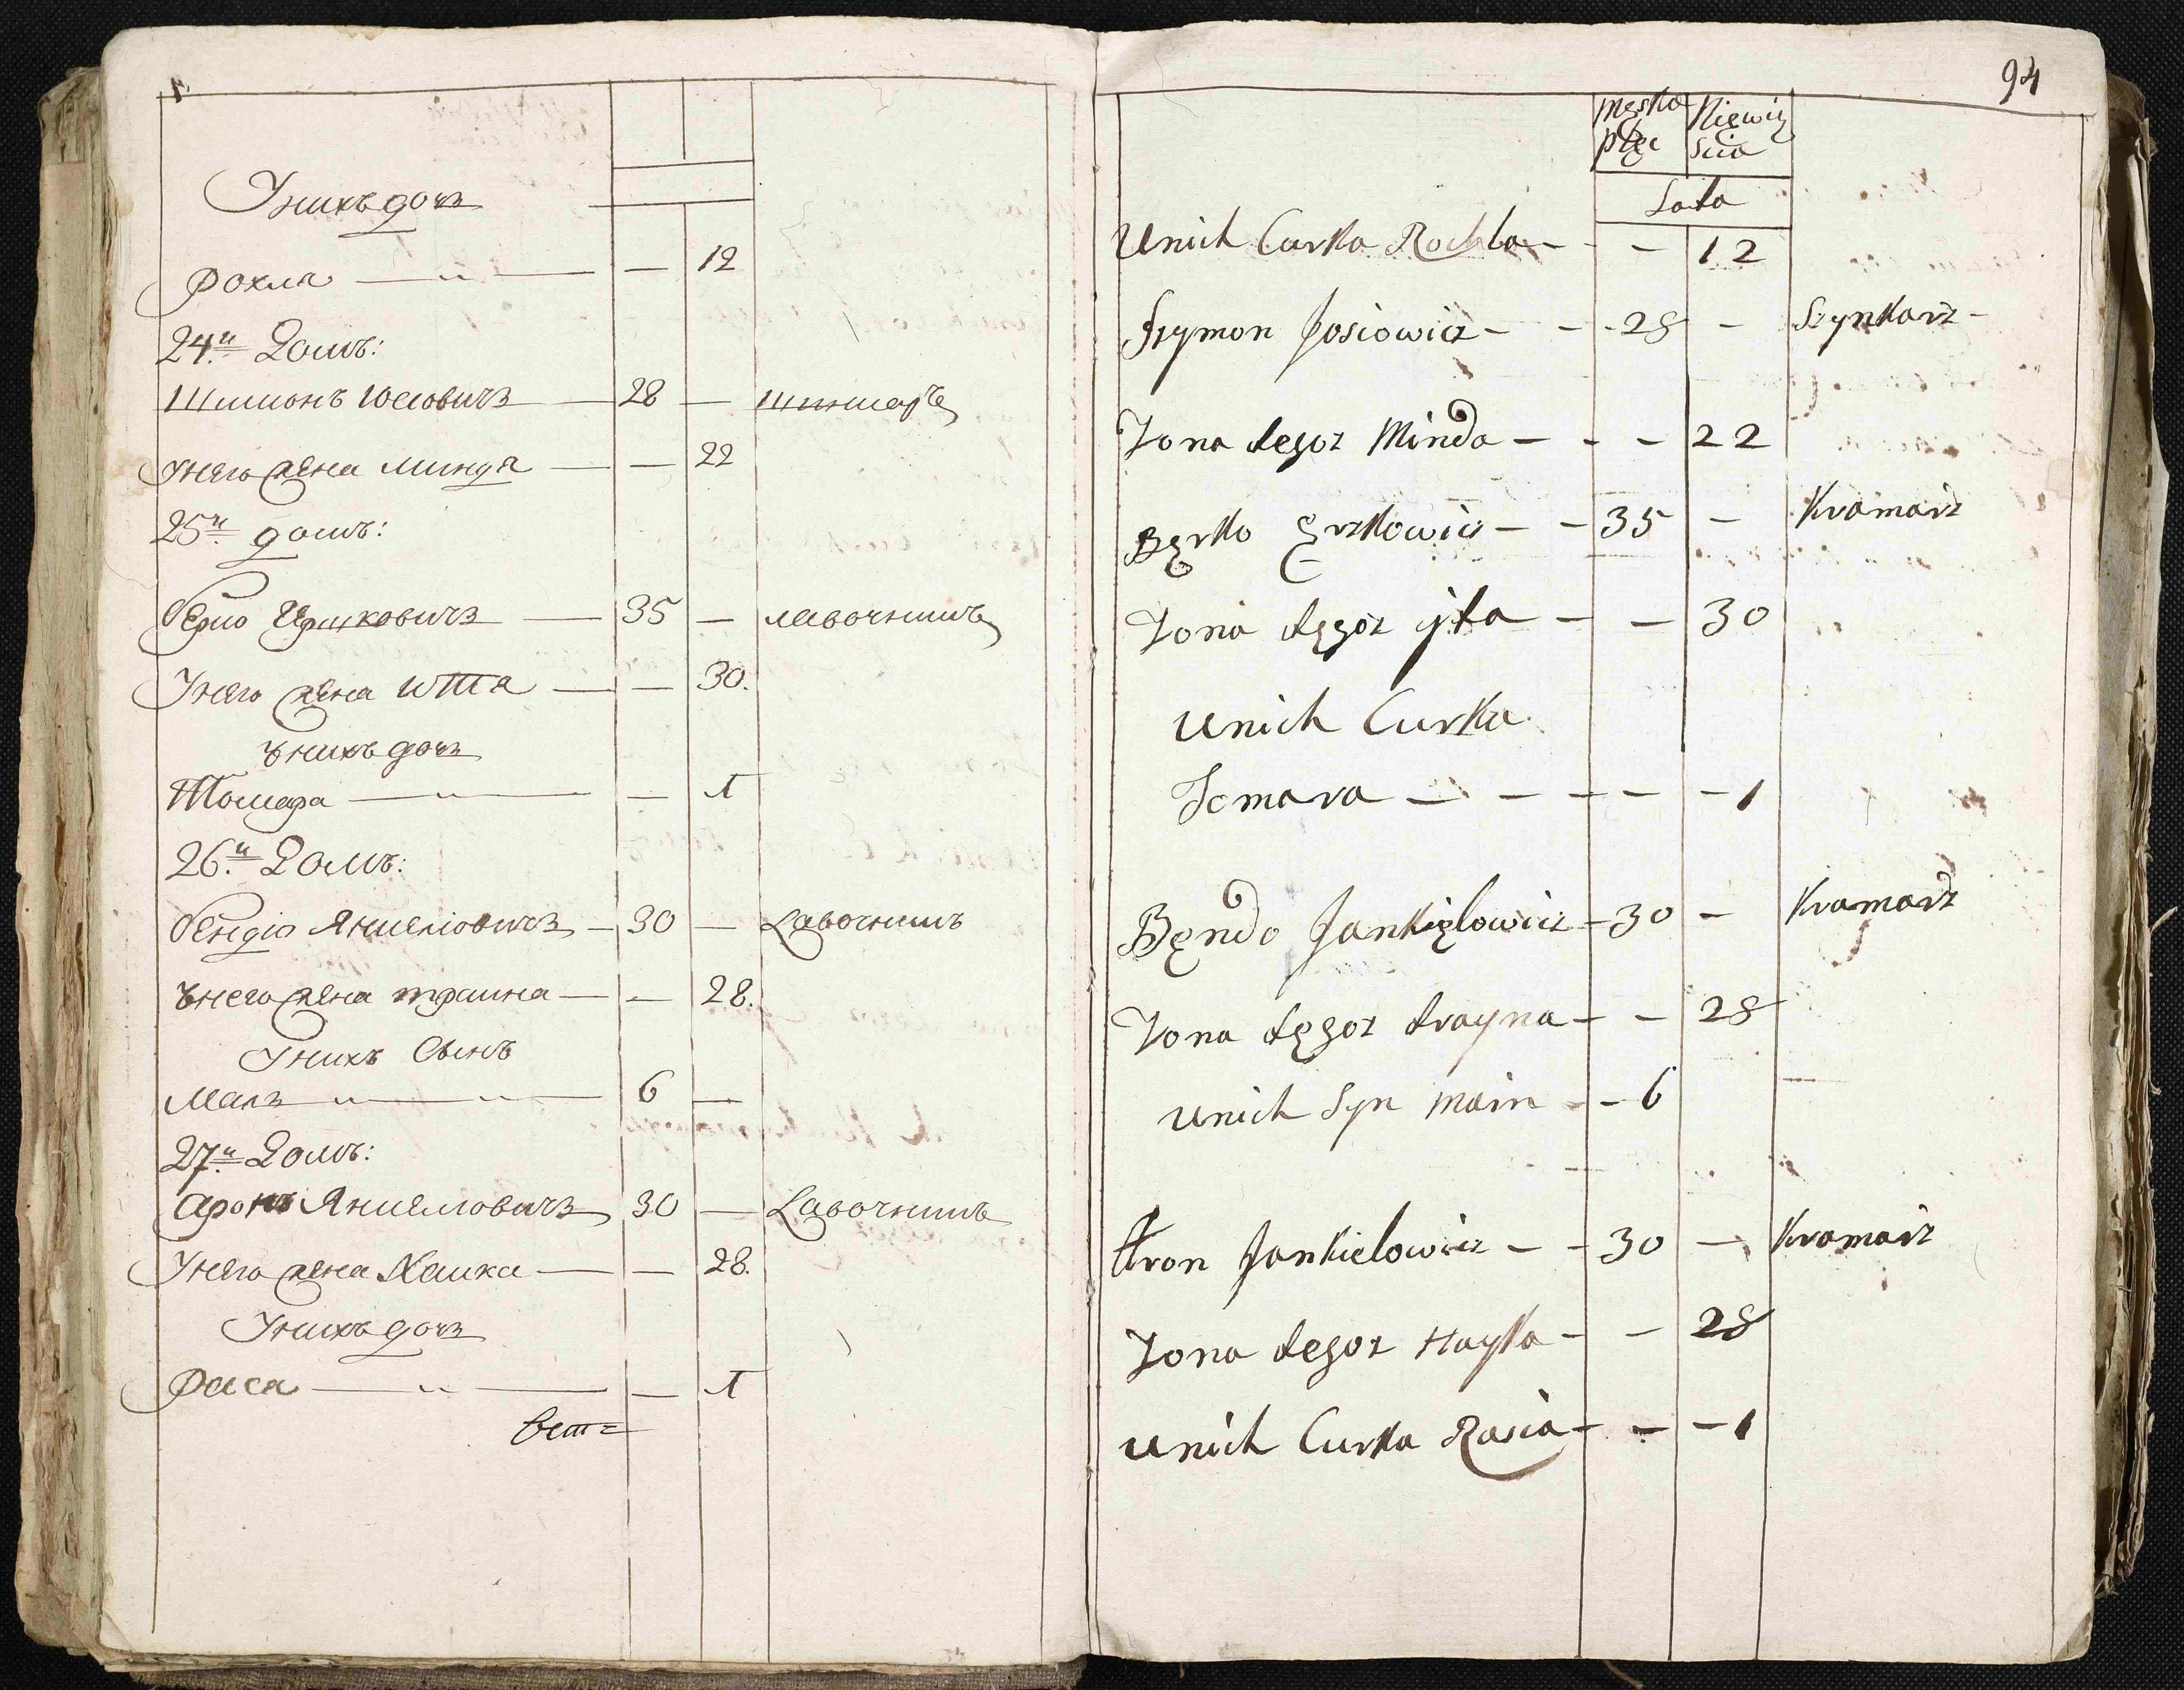 Унихъ доч
Рохля — — 12
24й Домъ:
Шимонъ Юсіовичъ — 28 — шинкаръ
Унего жена Миндя — — 22
25й домъ:
Берко Ершковичъ — 35 — лавочникъ
Унего жена Итта — — 30.
Унихъ доч
Томара — — 1
26й Домъ:
Бендіо Янкеліовичъ — 30 — Лавочникъ
Унего жена траина — — 28.
Унихъ Сынъ
Манъ — 6 —
27й Домъ:
Аронъ Янкеліовичъ 30 — Лавочникъ
Унего жена Хаика — — 28.
Унихъ доч
Раса — — 1
94
męska Niewiy
płec scia
Lata
Unich Curka Rochla - - - 12
Szymon Josiowicz - - - 28 - Szynkarz -
Zona tegoz Minda - - - 22
Bęrko Ęrzkowicz - - 35 - Kramarz
Zona tęgoz yta - - 30
Unich Curka
Tomara - - - - - - 1
Bęndo Jankięlowicz - 30 - Kramarz
Zona tęgoz trayna - - 28
Unich Syn Main - - 6
Aron Jankielowicz - - 30 - Kramarz
Zona tegoz Hayka - - 28
Unich Curka Rasia - - - 1